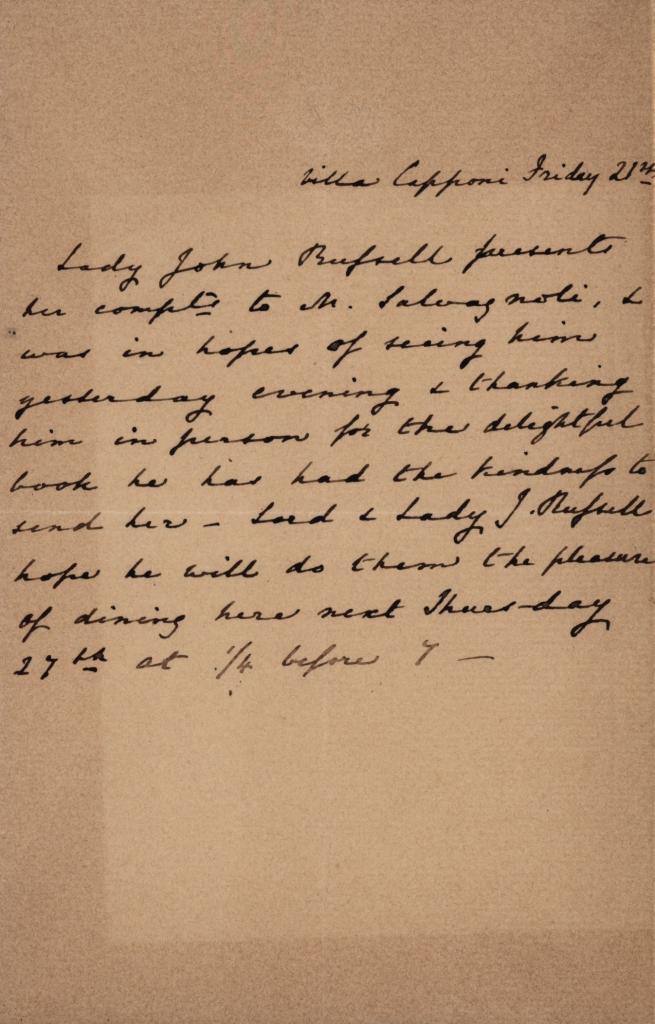 Villa Capponi Friday 21st
Lady John Russell presents
her complts to M. Salvagnoli, &
was in hopes of seeing him
yesterday evening & thanking
him in person for the delightful
book he has had the kindness to
send her – Lord & Lady J. Russell
hope he will do them the pleasure
of dining here next Thursday
27th at 1/4 before 7 –